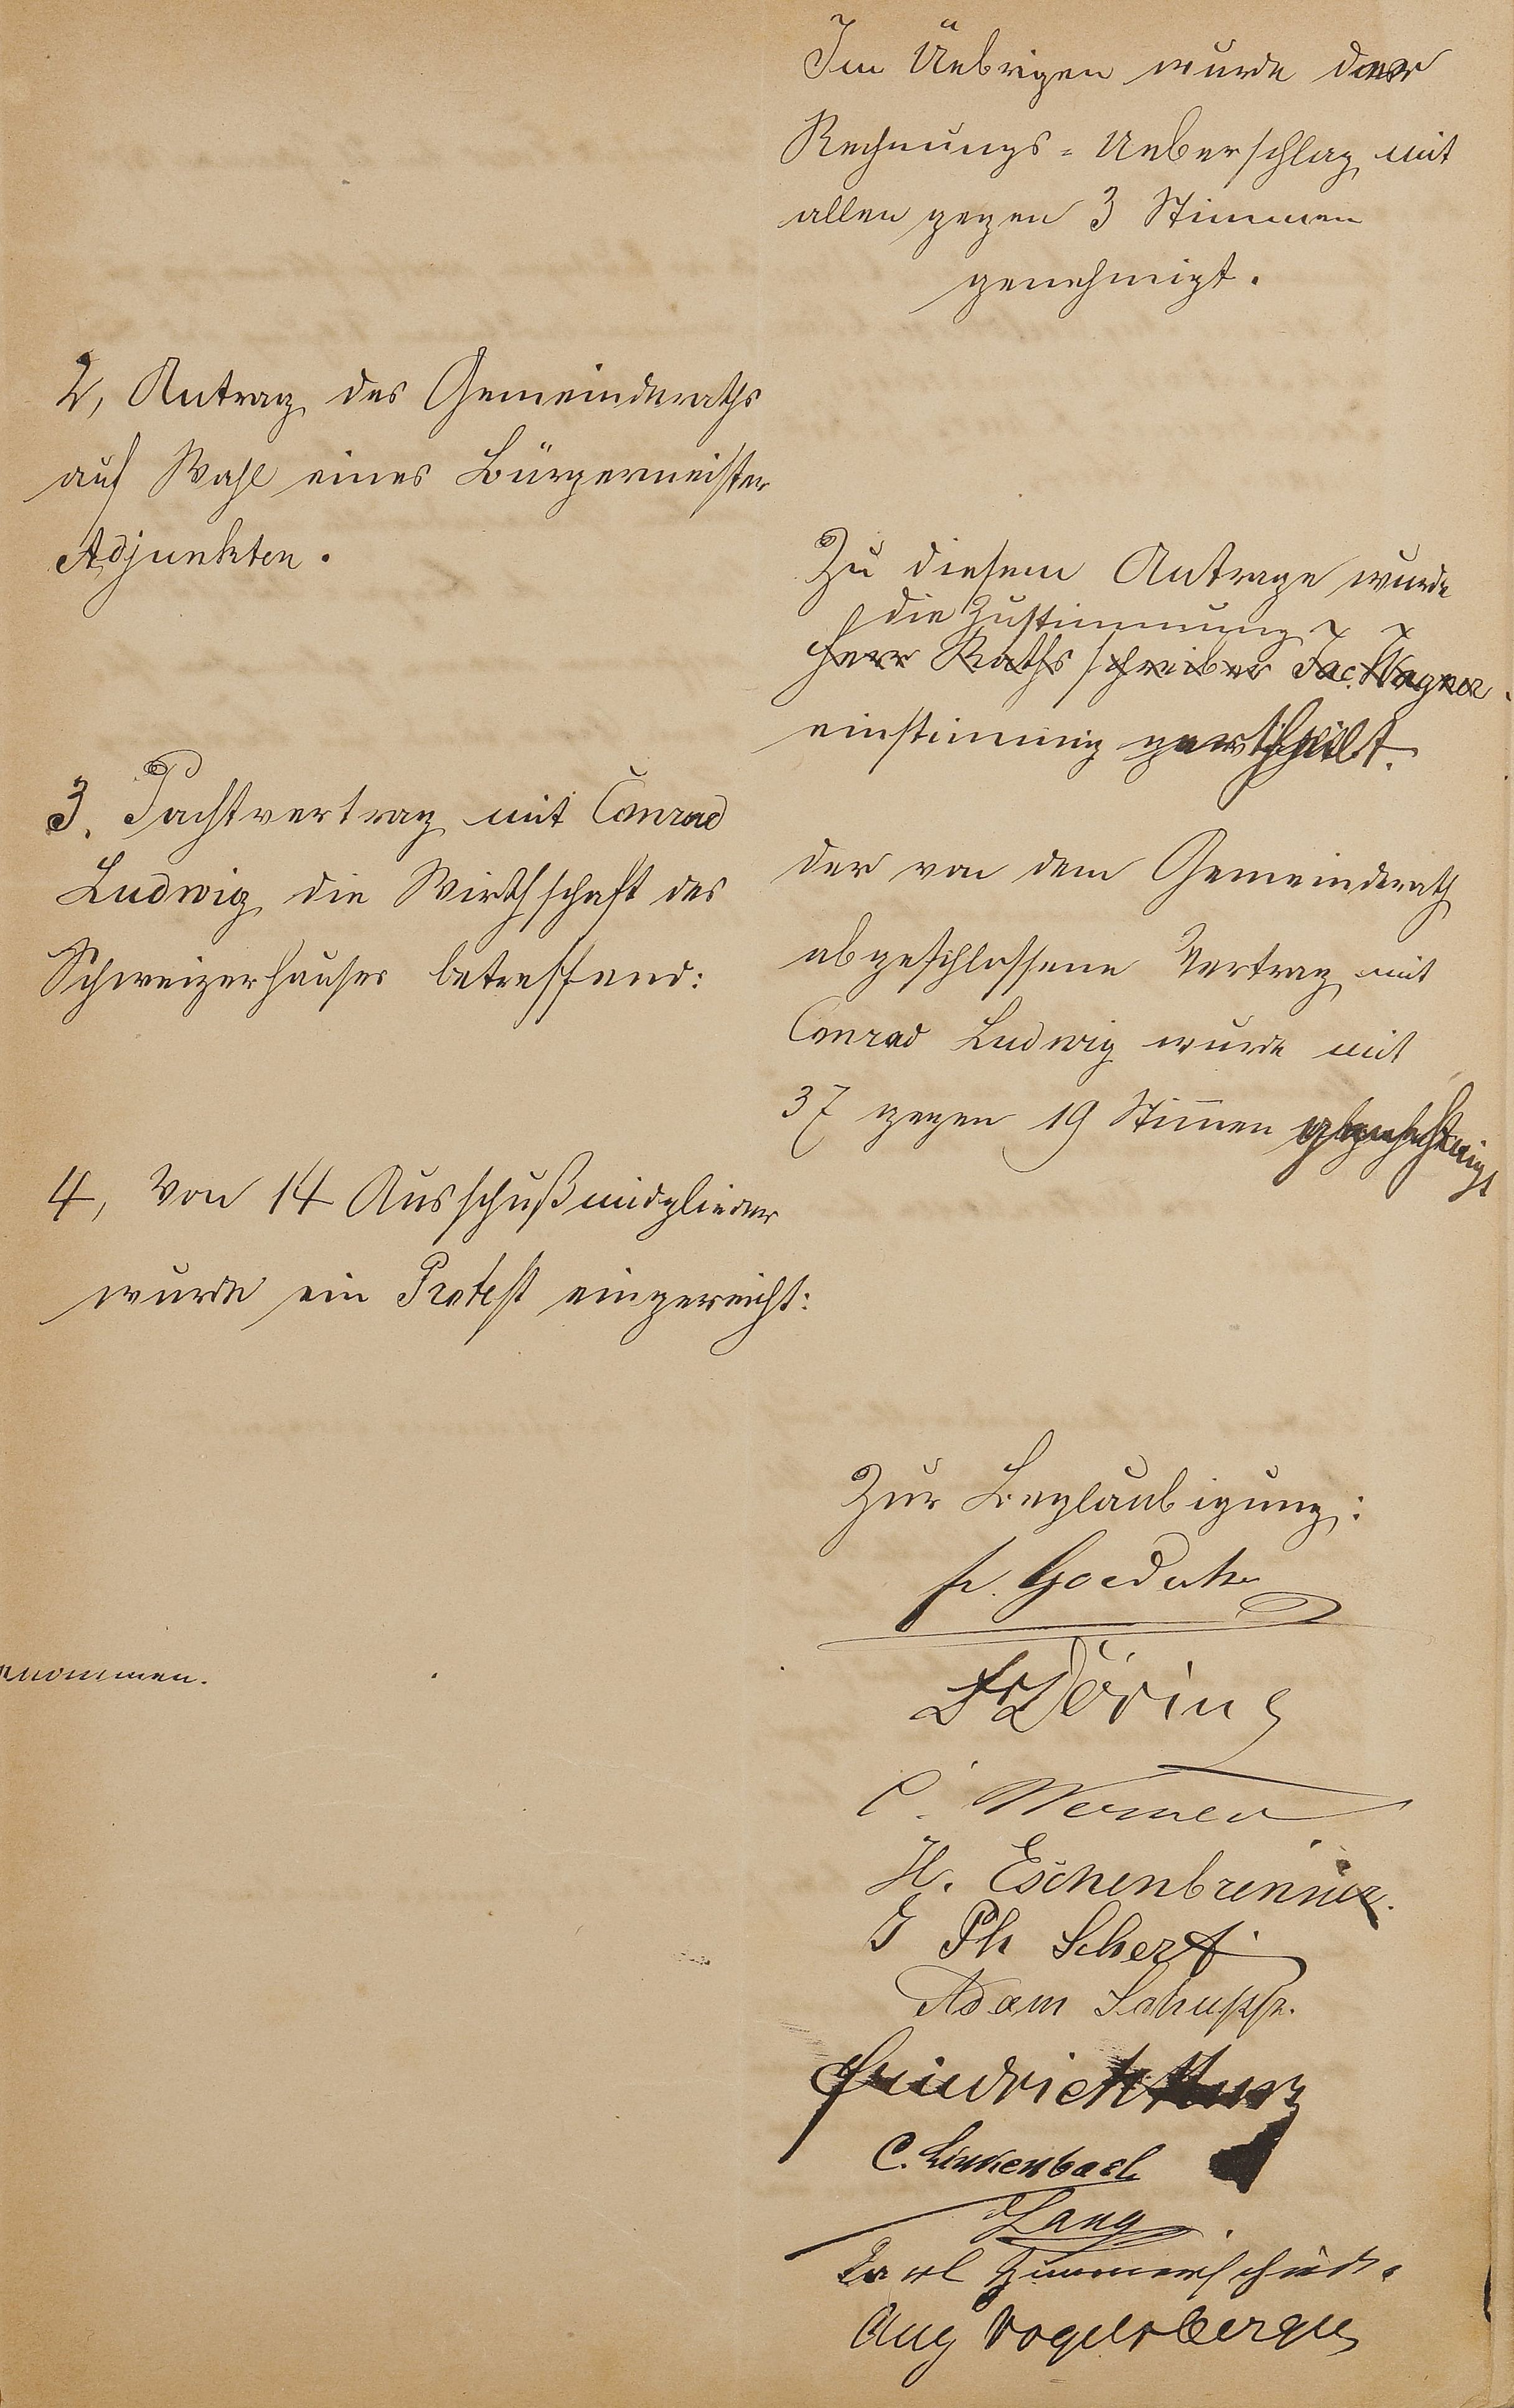 Im Üebrigen wurde der
Rechnungs = Ueberschlag mit
allen gegen 3 Stimmen
genehmigt.
2, Antrag des Gemeinderaths
auf Wahl eines Bürgermeister
Adjunkten.
Zu diesem Antrage wurde
die Zustimmung
Herr Rathsschreiber Jac. Wagner
einstimmig ertheilt.
3. Pachtvertrag mit Conrad
Ludwig die Wirthschaft des
Schweizerhauses betreffend:
der von dem Gemeinderath
abgeschlossene Vertrag mit
Conrad Ludwig wurde mit
37 gegen 19 Stimen
4, Von 14 Ausschußmidglieder
wurde ein Protest eingereicht:
Zur Beglaubigung:
Fr. Goedecke
Fr Döring
C. Werner
H. Eschenbrenner.
J Ph Scherf
Adam Schupp.
Friedrich Kurz
C. Linkenbach
Lang
Karl Zimmerschied.
Aug Vogelsberger
nommen.